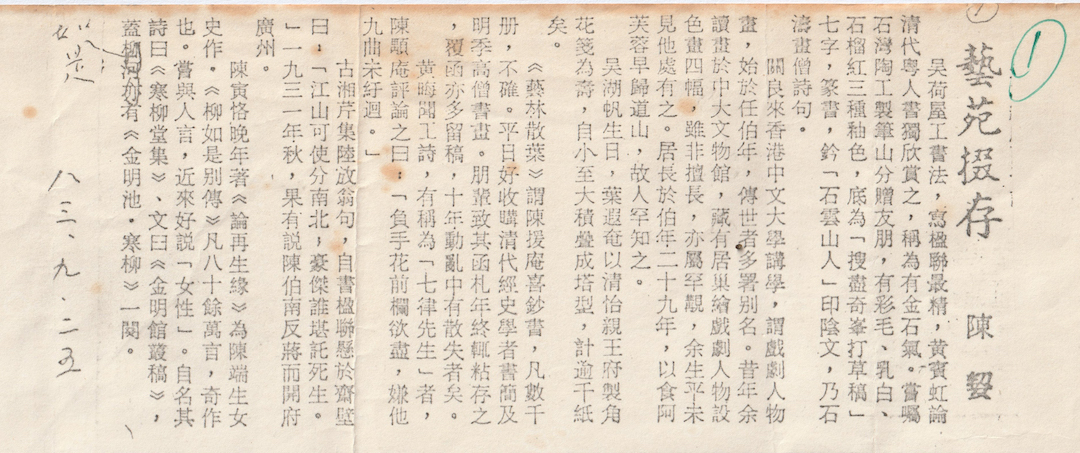 ①
①
藝苑掇存
陳䂮
吴荷屋工書法，寫楹聯最精，黃賓虹論
清代粤人書獨欣賞之，稱為有金石氣。嘗囑
石灣陶工製筆山分贈友朋，有彩毛、乳白、
石榴紅三種釉色，底為「搜盡奇峯打草稿」
七字，篆書，鈐「石雲山人」印陰文，乃石
濤畫僧詩句。
關良來香港中文大學講學，謂戲劇人物
畫，始於任伯年，傳世者多署别名。昔年余
讀畫於中大文物館，藏有居巢繪戲劇人物設
色畫四幅，雖非擅長，亦屬罕覯，余生平未
見他處有之。居長於伯年二十九年，以食阿
芙蓉早歸道山，故人罕知之。
吴湖帆生日，葉遐奄以清怡親王府製角
花箋為壽，自小至大積疊成塔型，計逾千紙
矣。
《藝林散葉》謂陳援庵喜鈔書，凡數千
册，不確。平日好收購清代經史學者書簡及
明季高僧書畫。朋輩致其函札年終輒粘存之
，覆函亦多留稿，十年動亂中有散失者矣。
黃晦聞工詩，有稱為「七律先生」者，
陳顒庵評論之曰：「負手花前欄欲盡，嫌他
九曲未紆迴。」
古湘芹集陸放翁句，自書楹聯懸於齋壁
曰：「江山可使分南北，豪傑誰堪託死生。
」一九三一年秋，果有説陳伯南反蔣而開府
廣州。
陳寅恪晚年著《論再生緣》為陳端生女
史作。《柳如是别傳》凡八十餘萬言，奇作
也。嘗與人言，近來好説「女性」。自名其
詩曰《寒柳堂集》、文曰《金明館叢稿》，
蓋柳河亦有《金明池·寒柳》一闋。
如是
八三、九、二五